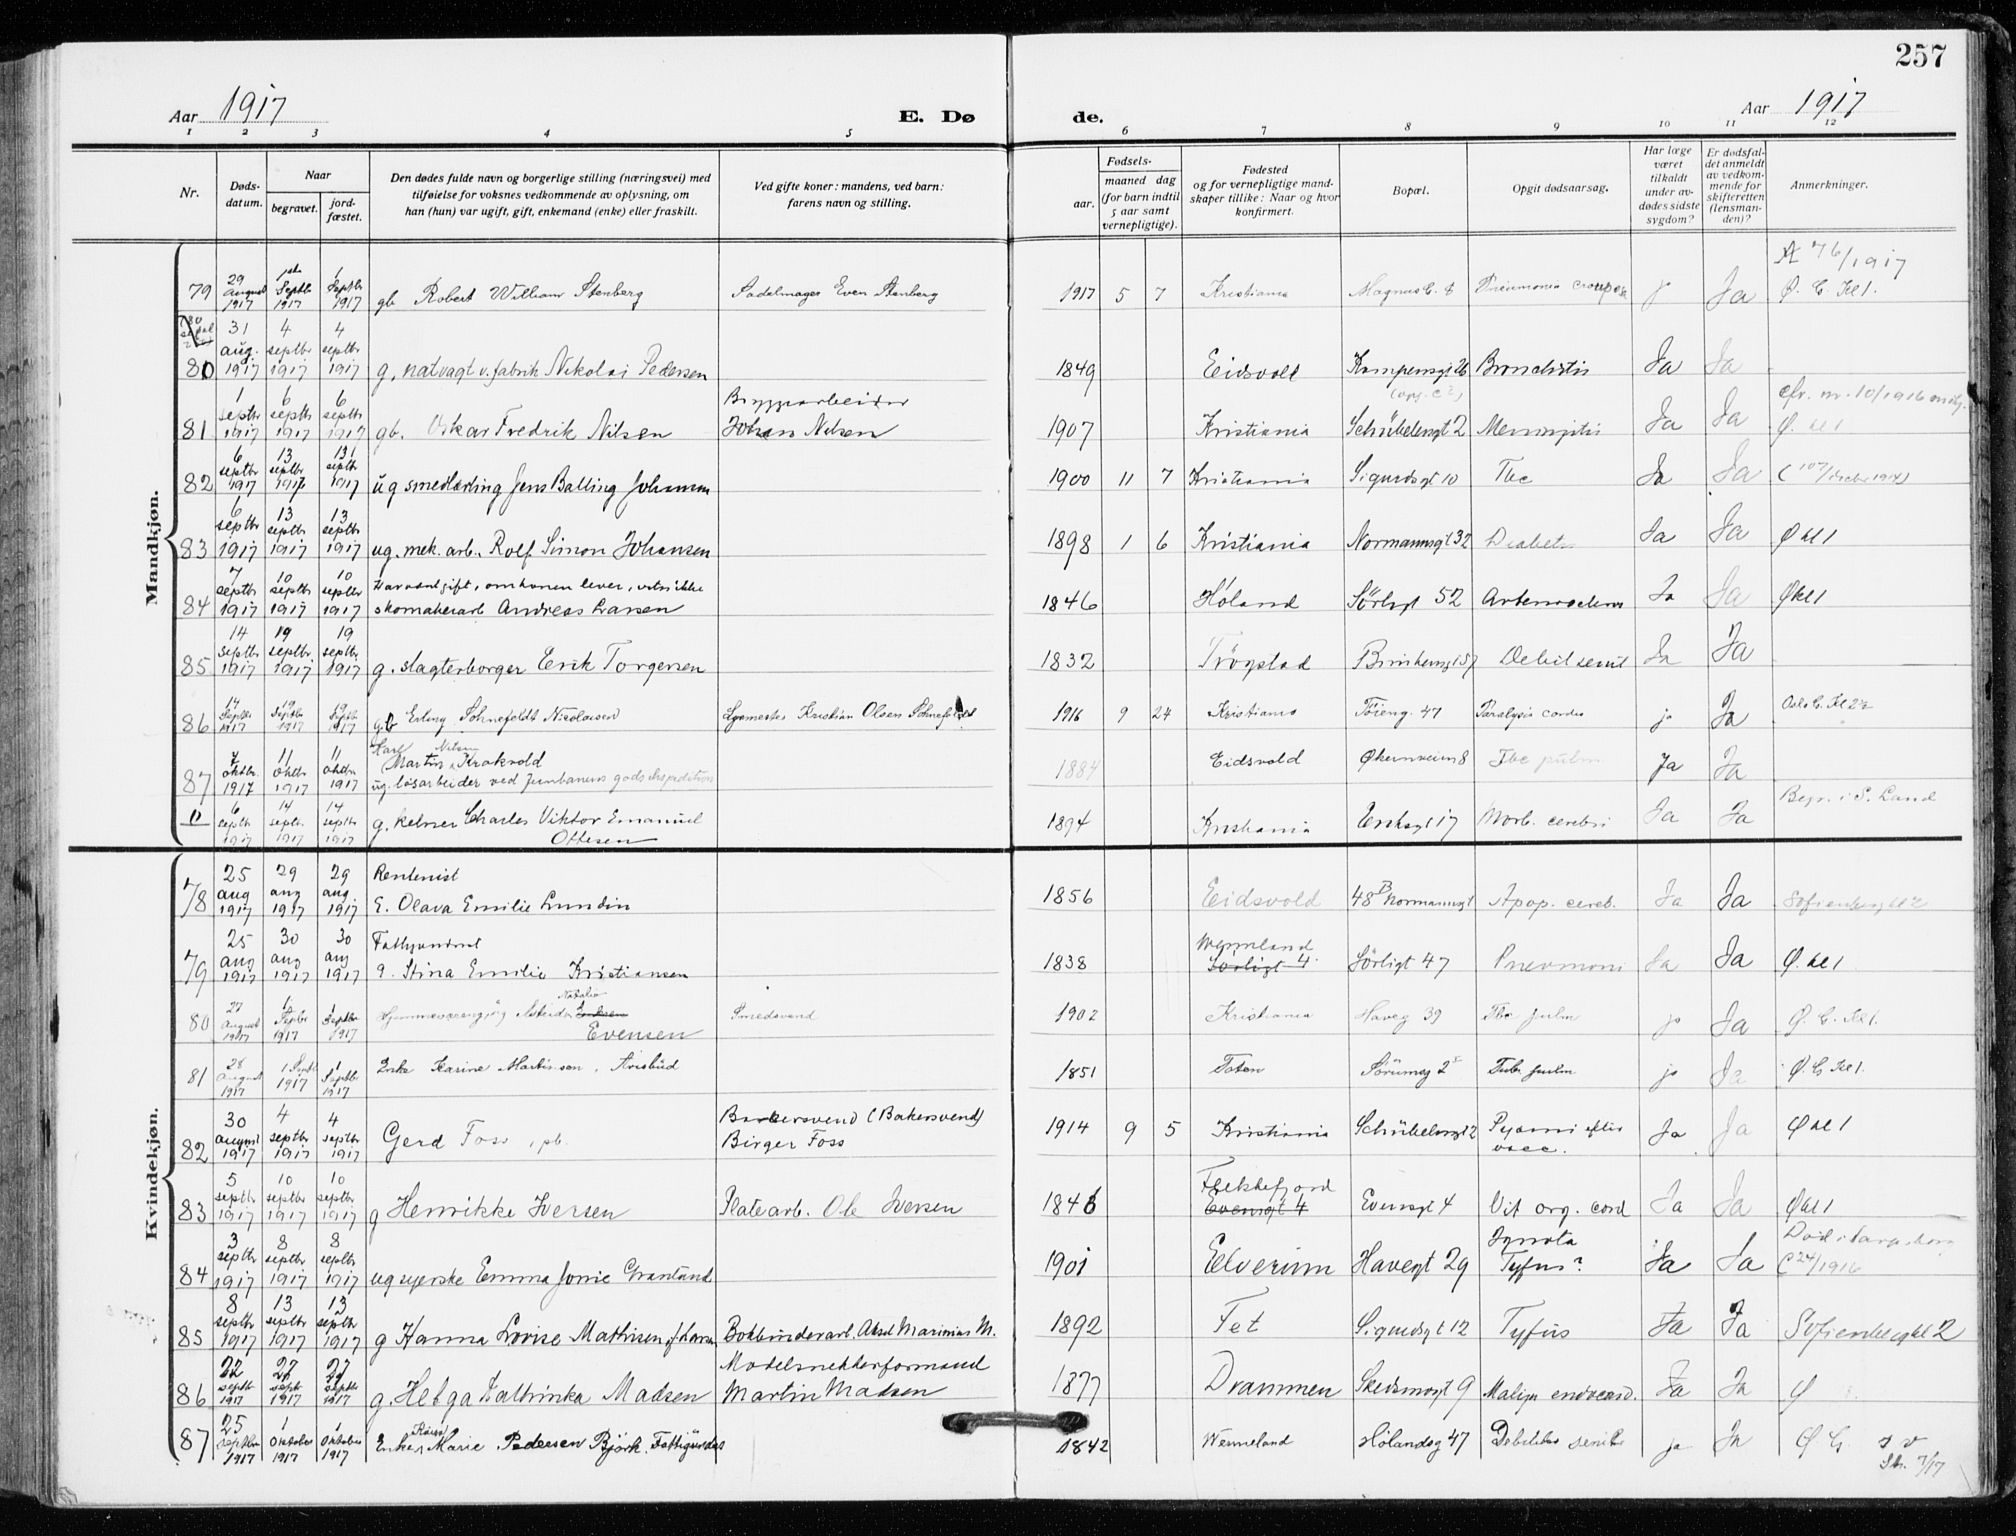 257
Aar 1917 E. Dø de. Aar 1917
1 2 3 4 5 6 7 8 9 10 11 12
Nr. Døds-datum. Naar begravet. jord-fæstet. Den dødes fulde navn og borgerlige stilling (næringsvei) med tilføielse for voksnes vedkommende av oplysning, om han (hun) var ugift, gift, enkemand (enke) eller fraskilt. Ved gifte koner: mandens, ved barn: farens navn og stilling. Fødsels- aar. maaned dag (for barn indtil 5 aar samt vernepligtige). Fødested og for vernepligtige mand-skaper tillike: Naar og hvor konfirmert. Bopæl. Opgit dødsaarsag. Har læge været tilkaldt under av-dødes sidste sygdom? Er dødsfal-det anmeldt av vedkom-mende for skifteretten (lensman-den)? Anmerkninger.
Mandkjøn.
79 29 August 1917 1ste Septbr 1917 1 Septbr 1917 gb Robert William Stenberg Sadelmager Even Stenberg 1917 5 7 Kristiania Pneumonia crouposa jo Ja 76/1917 Ø. C. Kl 1.
80 31 aug. 1917 4 septbr 1917 4 septbr 1917 g. natvagt v. fabrik Nikolai Pedersen 1849 Eidsvold Kampensgt 26 Bronchitis Ja Ja
81 1 septbr 1917 6 septbr 1917 6 septbr 1917 gb. Oskar Fredrik Nilsen Bryggearbeider Johan Nilsen 1907 Kristiania Schübelersgt 2 Meningitis Ja Ja cfr. nr. 10/1916 Ø. kl 1
82 6 septbr 1917 13 septbr 1917 13 septbr 1917 ug smedlærling Jens Balling Johansen 1900 11 7 Kristiania Sigurdsgt 10 Tbc Ja Ja
83 6 septbr 1917 13 septbr 1917 13 septbr 1917 ug. mek. arb. Rolf Simon Johansen 1898 1 6 Kristiania Normannsgt 32 Diabetes Ja Ja Ø kl 1
84 7 septbr 1917 10 septbr 1917 10 septbr 1917 Har været gift, om konen lever, vites ikke skomakerarb Andreas Larsen 1846 Høland Sörligt 52 Ja Ja Ø kl 1
85 14 septbr 1917 19 septbr 1917 19 septbr 1917 g. slagterborger Erik Torgersen 1832 Trögstad Debil senil Ja Ja
86 14 Septbr 1917 19 Septbr 1917 19 Septbr 1917 gb Erling Sohnefeldt Nicolaisen Kristian Olsen Sohnefeldt 1916 9 24 Kristiania Töieng. 47 Paralysis cordis jo Ja Oslo C. Kl 2
87 7 oktbr. 1917 11 oktbr. 1917 11 oktbr. 1917 Karl Martin Nilsen Krakvold ug. løsarbeider ved Jernbanens godsekspedition 1884 Eidsvold Økernveien 8 Tbc pulm Ja Ja
0 6 septbr 1917 14 septbr. 1917 14 septbr 1917 g. kelner Charles Viktor Emanuel Ottesen 1894 Kristiania Eriksgt 17 Morb. cerebri Ja Ja Begr. i S. Land
Kvindekjøn.
78 25 aug 1917 29 aug 1917 29 aug. 1917 Rentenist E. Olava Emilie Lundin 1856 Eidsvold 48 B Normannsgt Apop. cereb. Ja Ja Sofienberg kl 2
79 25 aug 1917 30 aug 1917 30 aug 1917 g. Stina Emilie Kristiansen 1838 Wermeland Sörligt 4. Sörligt 47 Pneumoni Ja Ja Ø. kl 1
80 27 August 1917 1 Septbr 1917 1 Septbr 1917 Hjemmeværende Natalia Evensen Smedsvend 1902 Kristiania Haveg 39 Tbc pulm jo Ja Ø. C. Kl 1.
81 28 August 1917 1 Septbr 1917 1 Septbr 1917 Enke Karine Martinsen Arisbüd 1851 Toten Sörumsg 2 Tub. pulm jo Ja Ø. C. Kl 1.
82 30 august 1917 4 septbr 1917 4 septbr 1917 Gerd Foss, pb. Bakersvend (Bakersvend) Birger Foss 1914 9 5 Kristiania Schübelersgt 2 Pyæmi efter vacc. Ja Ja Ø kl 1
83 5 septbr 1917 10 septbr 1917 10 septbr 1917 g Henrikke Iversen Platearb. Ole Iversen 1846 Flekkefjord Evensgt 4 Evensgt 4 Vit. org. cord Ja Ja Ø kl 1
84 3 septbr 1917 8 septbr 1917 8 septbr 1917 ug syerske Emma Jonie Granlund 1901 Elverum Havegt 29 Ignota Tyfus? Ja Ja 24/1916
85 8 septbr 1917 13 septbr 1917 13 septbr 1917 g Hanna Lovise Mathisen f. Larsen Bokbinderarb. Aksel Marinius M. 1892 Fet Sigurdsgt 12 Tyfus Ja Ja Sofienberg kl 2
86 22 septbr 1917 27 septbr 1917 27 septbr 1917 g. Helga Kathinka Madsen Modelsnekkerformand Martin Madsen 1877 Drammen Skedsmogt 9 Malign endocard. Ja Ja Ø
87 25 septbr 1917 1 Oktober 1917 1 Oktober 1917 Enke Marie Pedersen Björk. 1842 Wermeland Hölandsg 47 Debilitas senilis ja Ja Ø G. 7/17